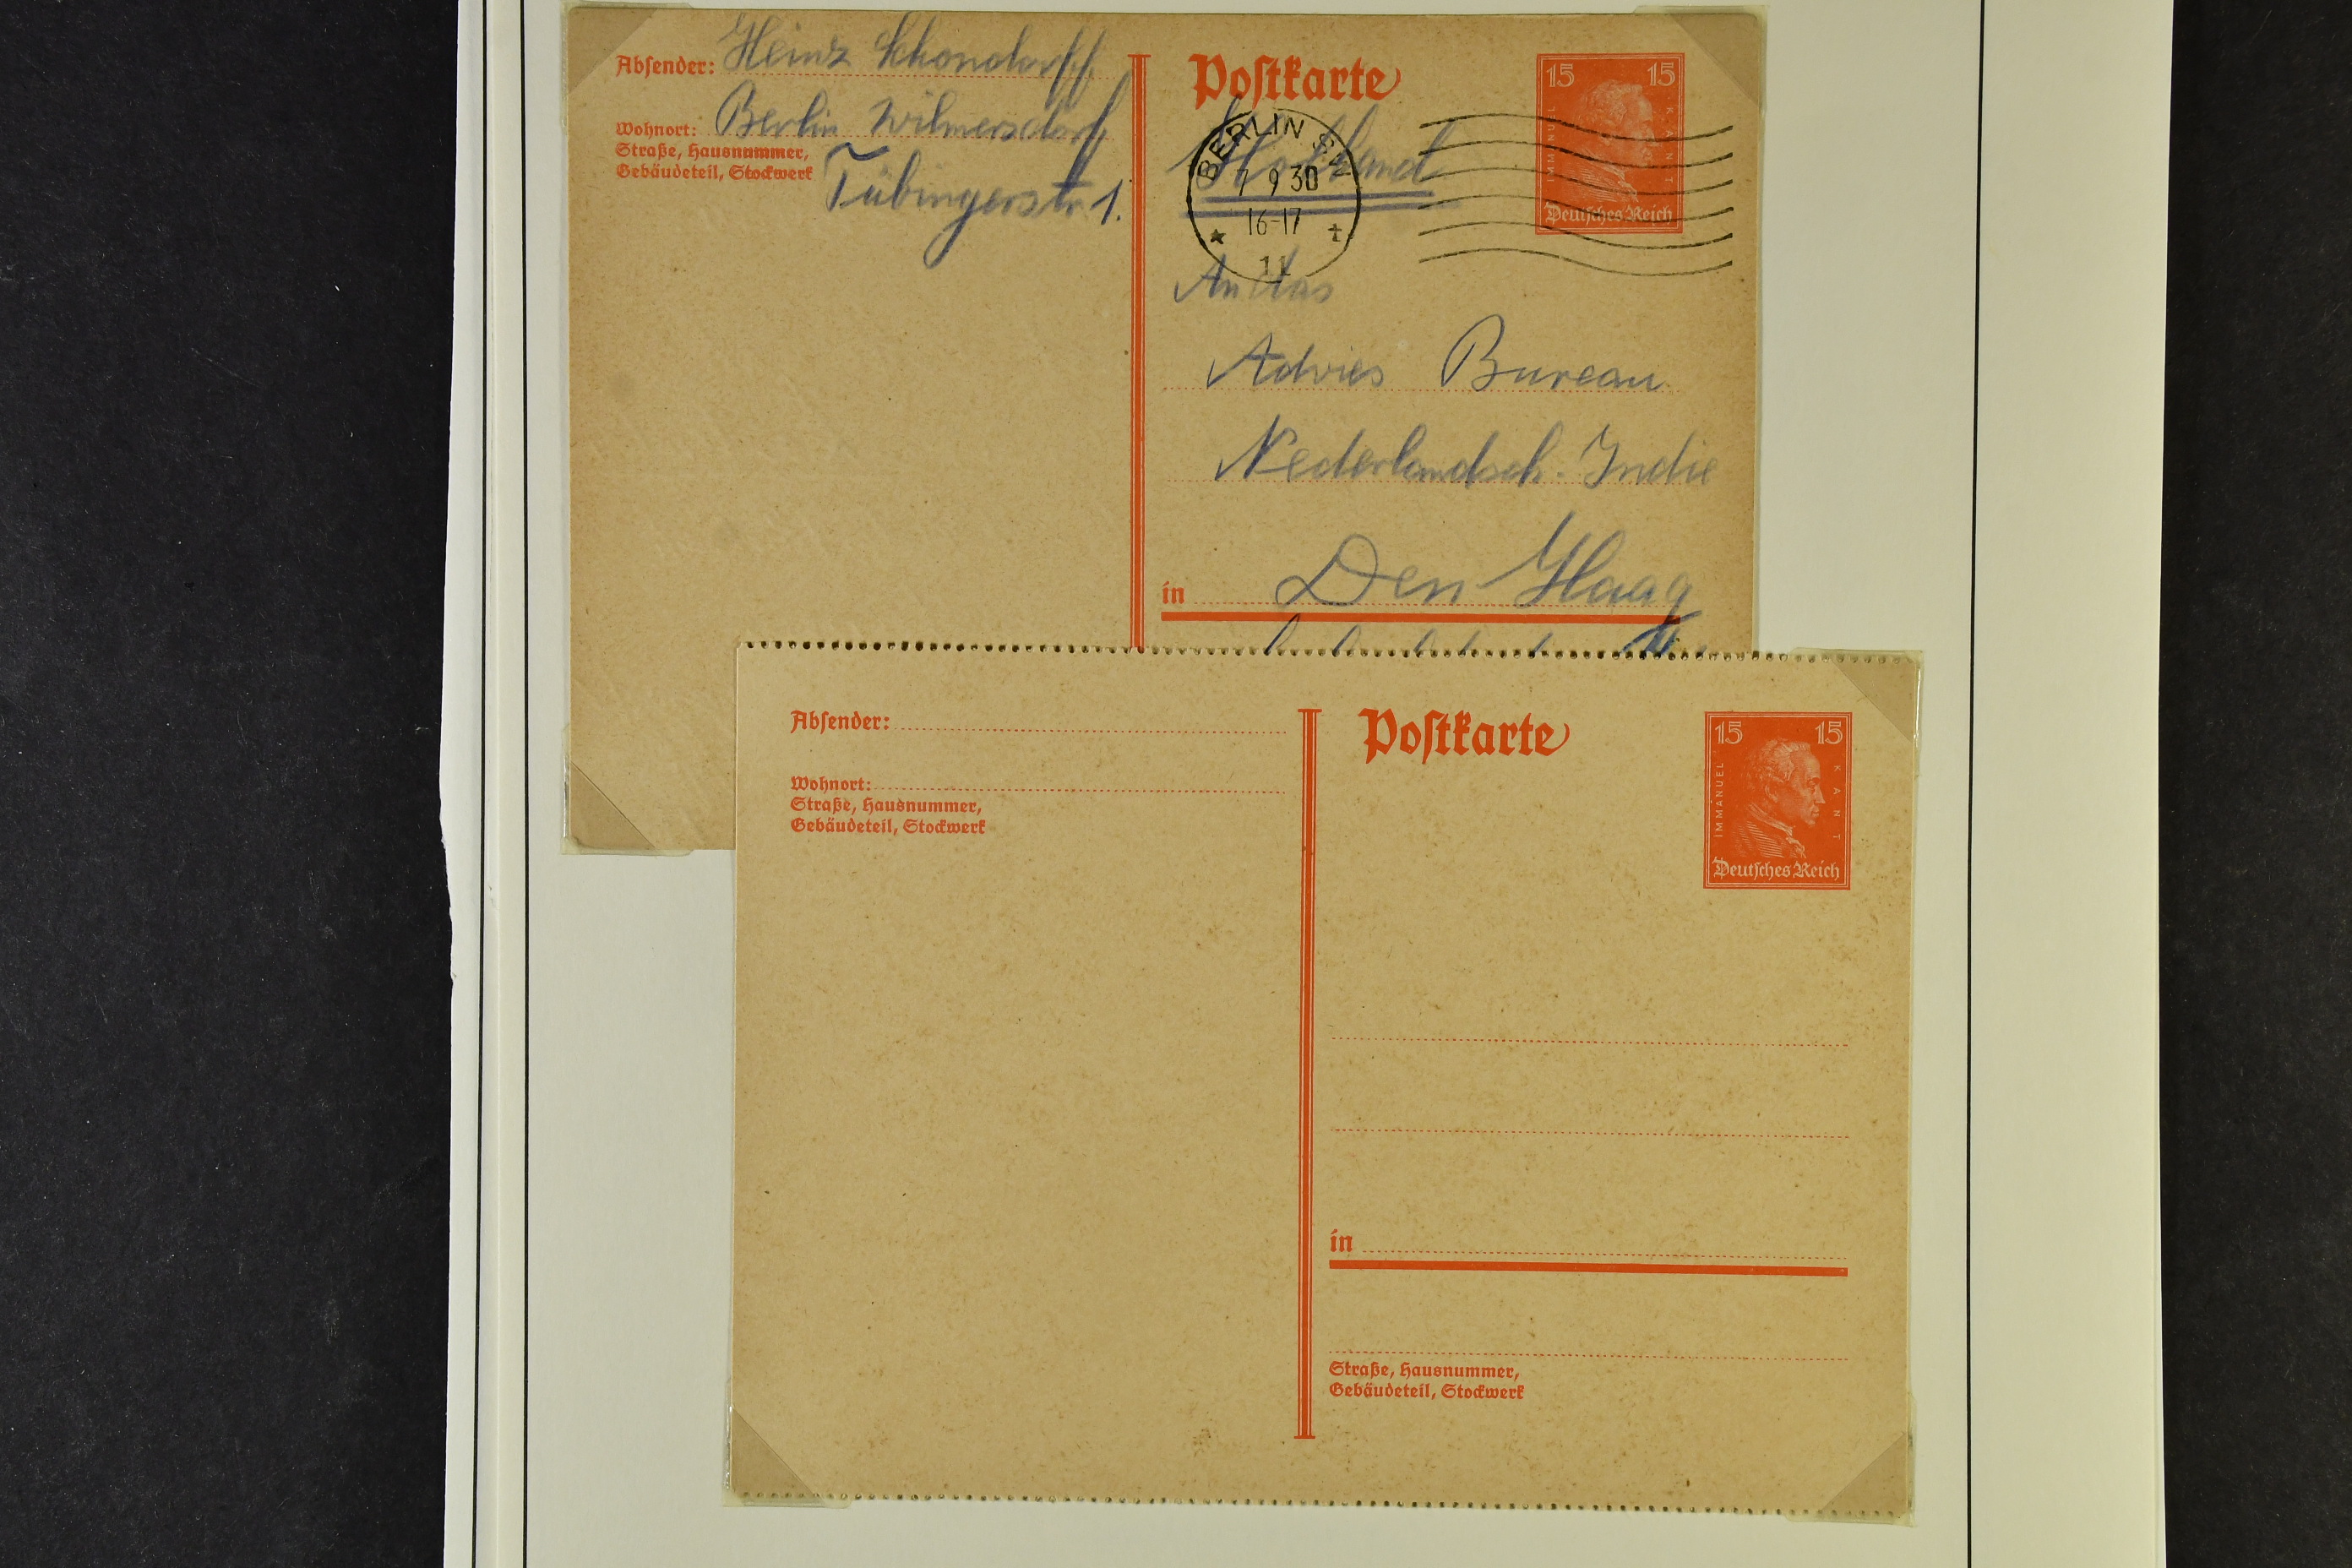 Absender: Heinz Schondorff
Wohnort: Berlin Wilmersdorf
Straße, Hausnummer,
Gebäudeteil, Stockwerk
Tübingerstr 1.
Postkarte
15 15
IMMANUEL KANT
Deutsches Reich
BERLIN SW
7 9 30
16-17
11
Holland
An das
Advies Bureau
Nederlandsch. Indie
in Den Haag
Absender:
Wohnort:
Straße, Hausnummer,
Gebäudeteil, Stockwerk
Postkarte
15 15
IMMANUEL KANT
Deutsches Reich
in
Straße, Hausnummer,
Gebäudeteil, Stockwerk